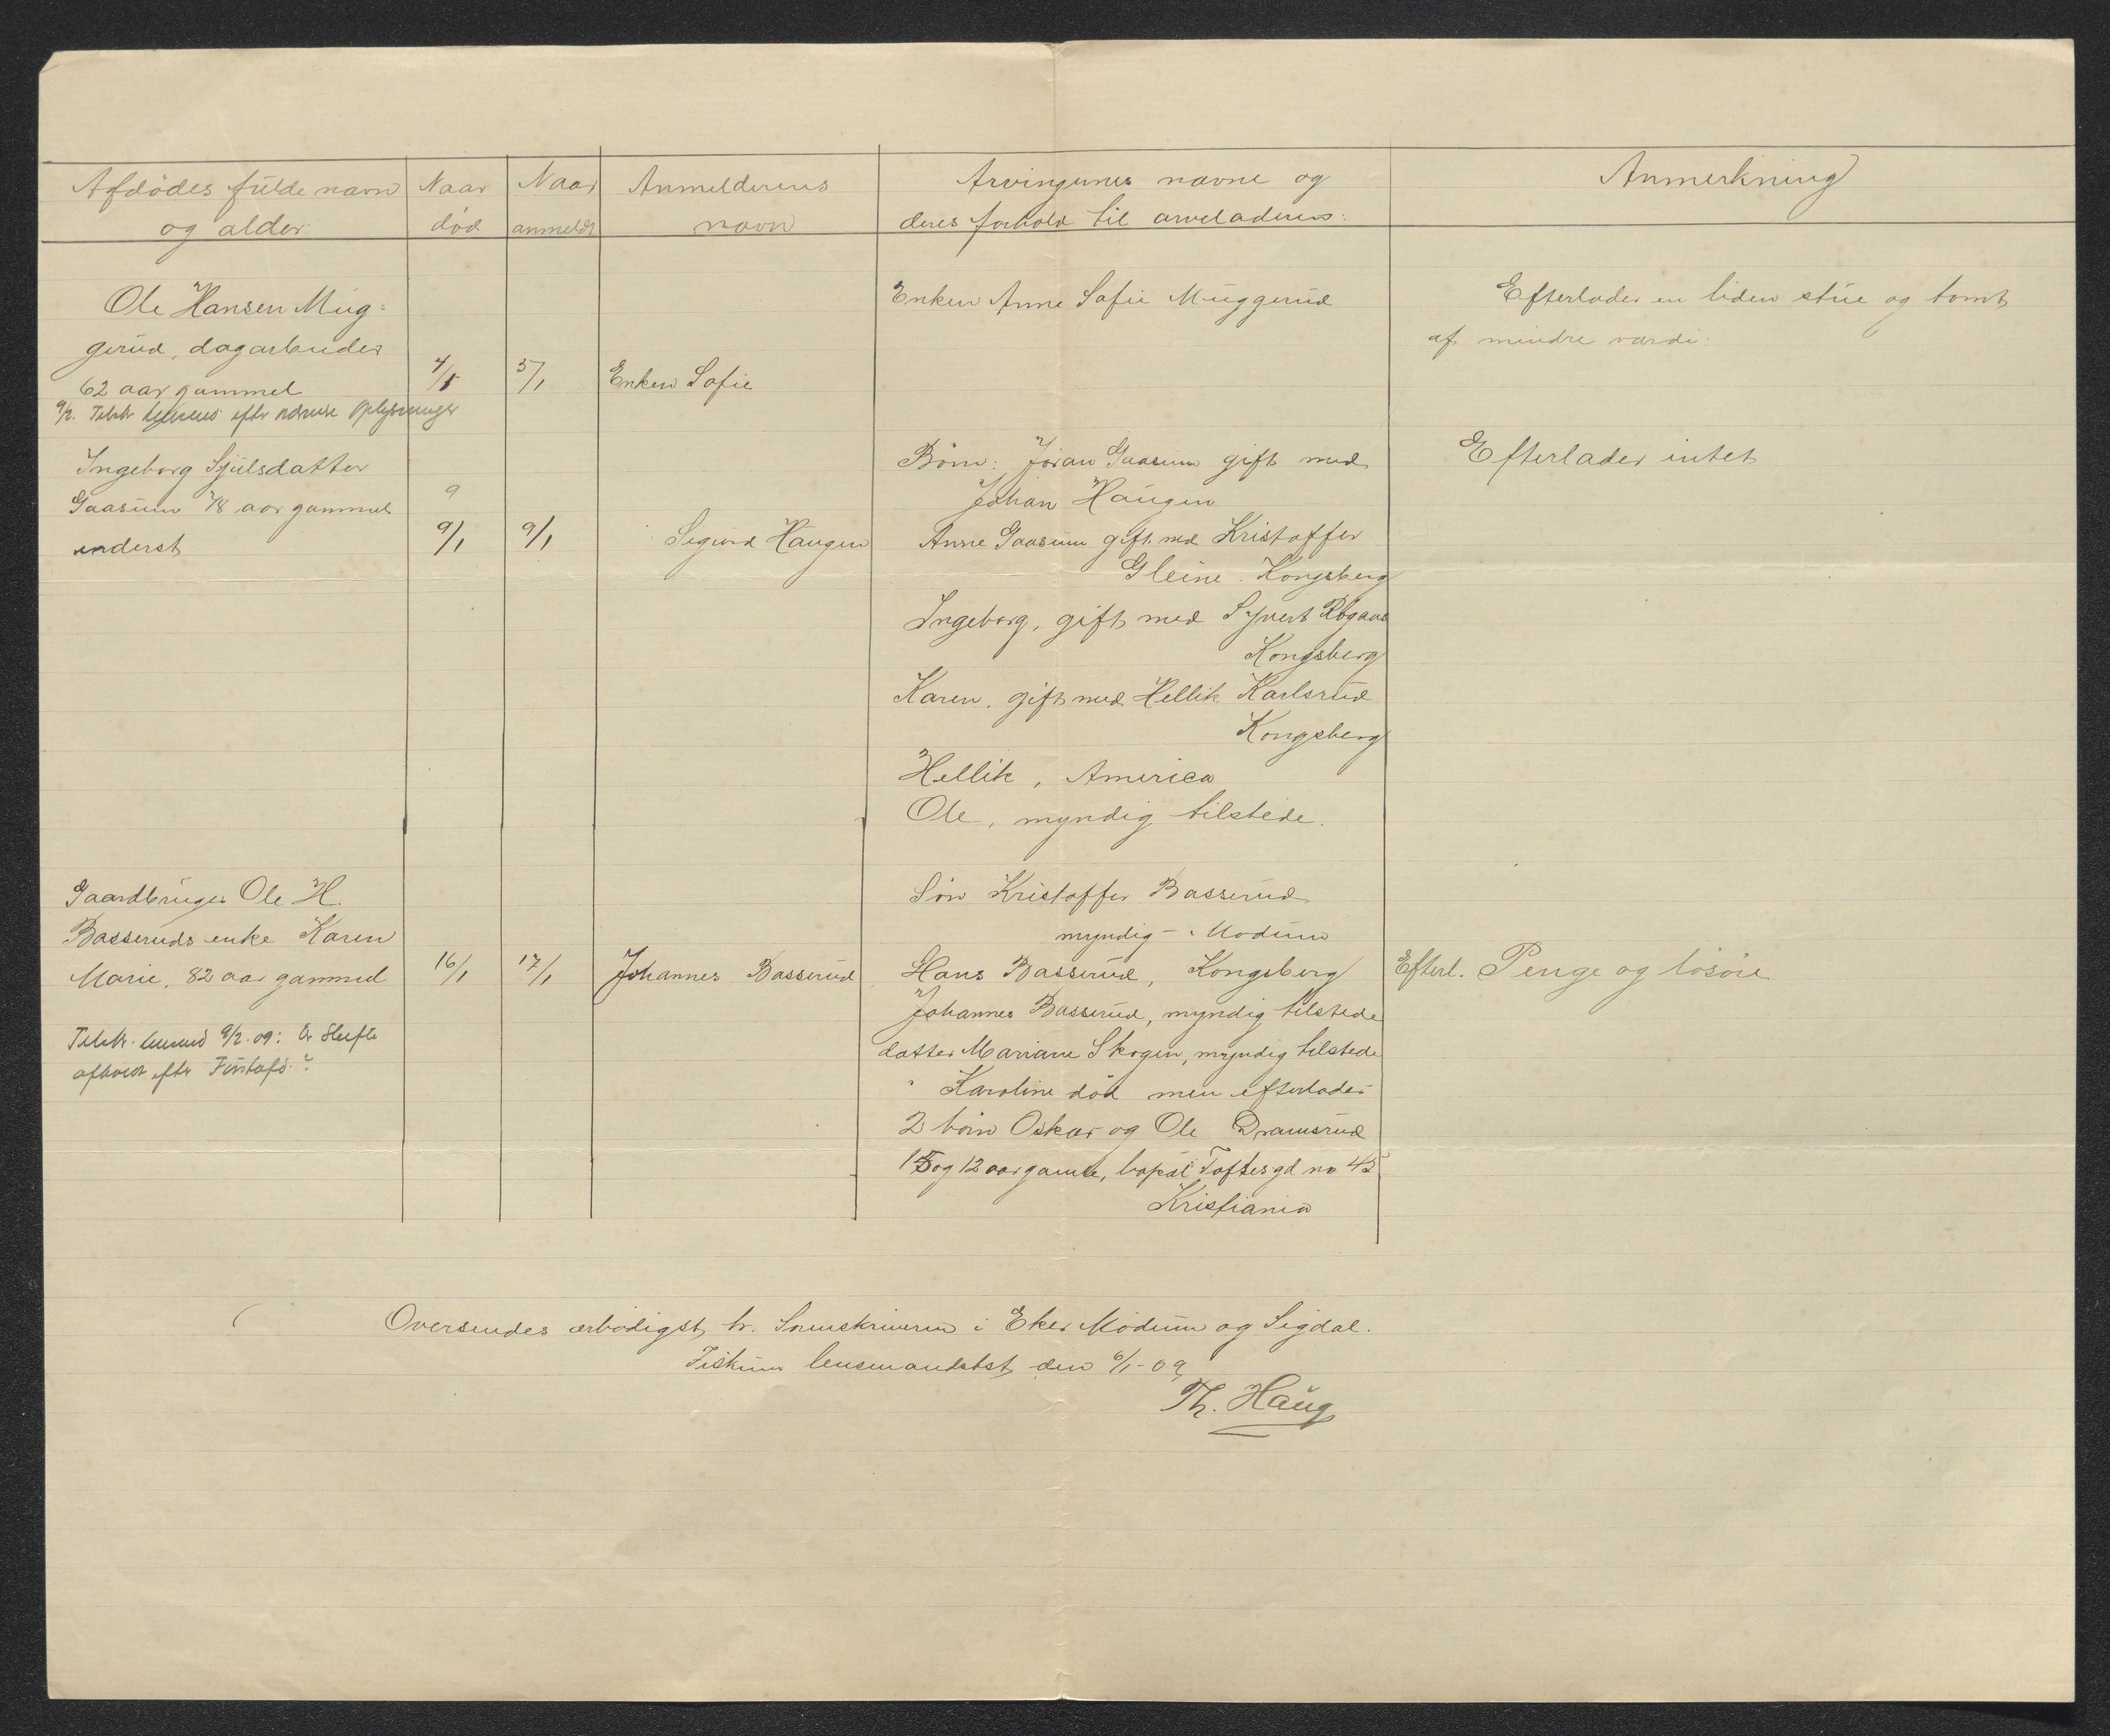 Afdödes fulde navn
og alder
Naar
död
Naar
anmeldt
Anmelderens
navn
Arvingernes navne og
deres forhold til arveladeren:
Anmerkning
Ole Hansen Mug=
gerud, dagarbeider
62 aar gammel
4/1
5/1
Enken Sofie
Enken Anne Sofie Muggerud
Efterlader en liden stue og tomt
af mindre værdi.
9/2. efter nærmere Oplysninger
Ingeborg Sjulsdatter
Gaasum 78 aar gammel
inderst
9
9/1
9/1
Sigurd Haugen
Börn: Jöran Gaasum gift med
Johan Haugen
Anne Gaasum gift med Kristoffer
Gleine. Kongsberg
Ingeborg, gift med Syvert
Kongsberg
Karen, gift med Hellik Karlsrud
Kongsberg
Hellik, America
Ole, myndig tilstede.
Efterlader intet
Gaardbruger Ole H.
Basseruds enke Karen
Marie, 82 aar gammel
16/1
17/1
Johannes Basserud
Sön Kristoffer Basserud
myndig - Modum
Hans Basserud, Kongsberg
Johannes Basserud, myndig tilstede
datter Mariane Skogen, myndig tilstede
" Karoline död men efterlader
2 börn Oskar og Ole Dramsrud
15 og 12 aar gamle, bopæl Toftesgd no 45
Kristiania
Efterl. Penge og lösöre
9/2.09: Er Skifte
afholdt efter
Oversendes ærbödigst hr. Sorenskriveren i Eker Modum og Sigdal.
Fiskum lensmandsbst den 6/1-09
Th. Haug